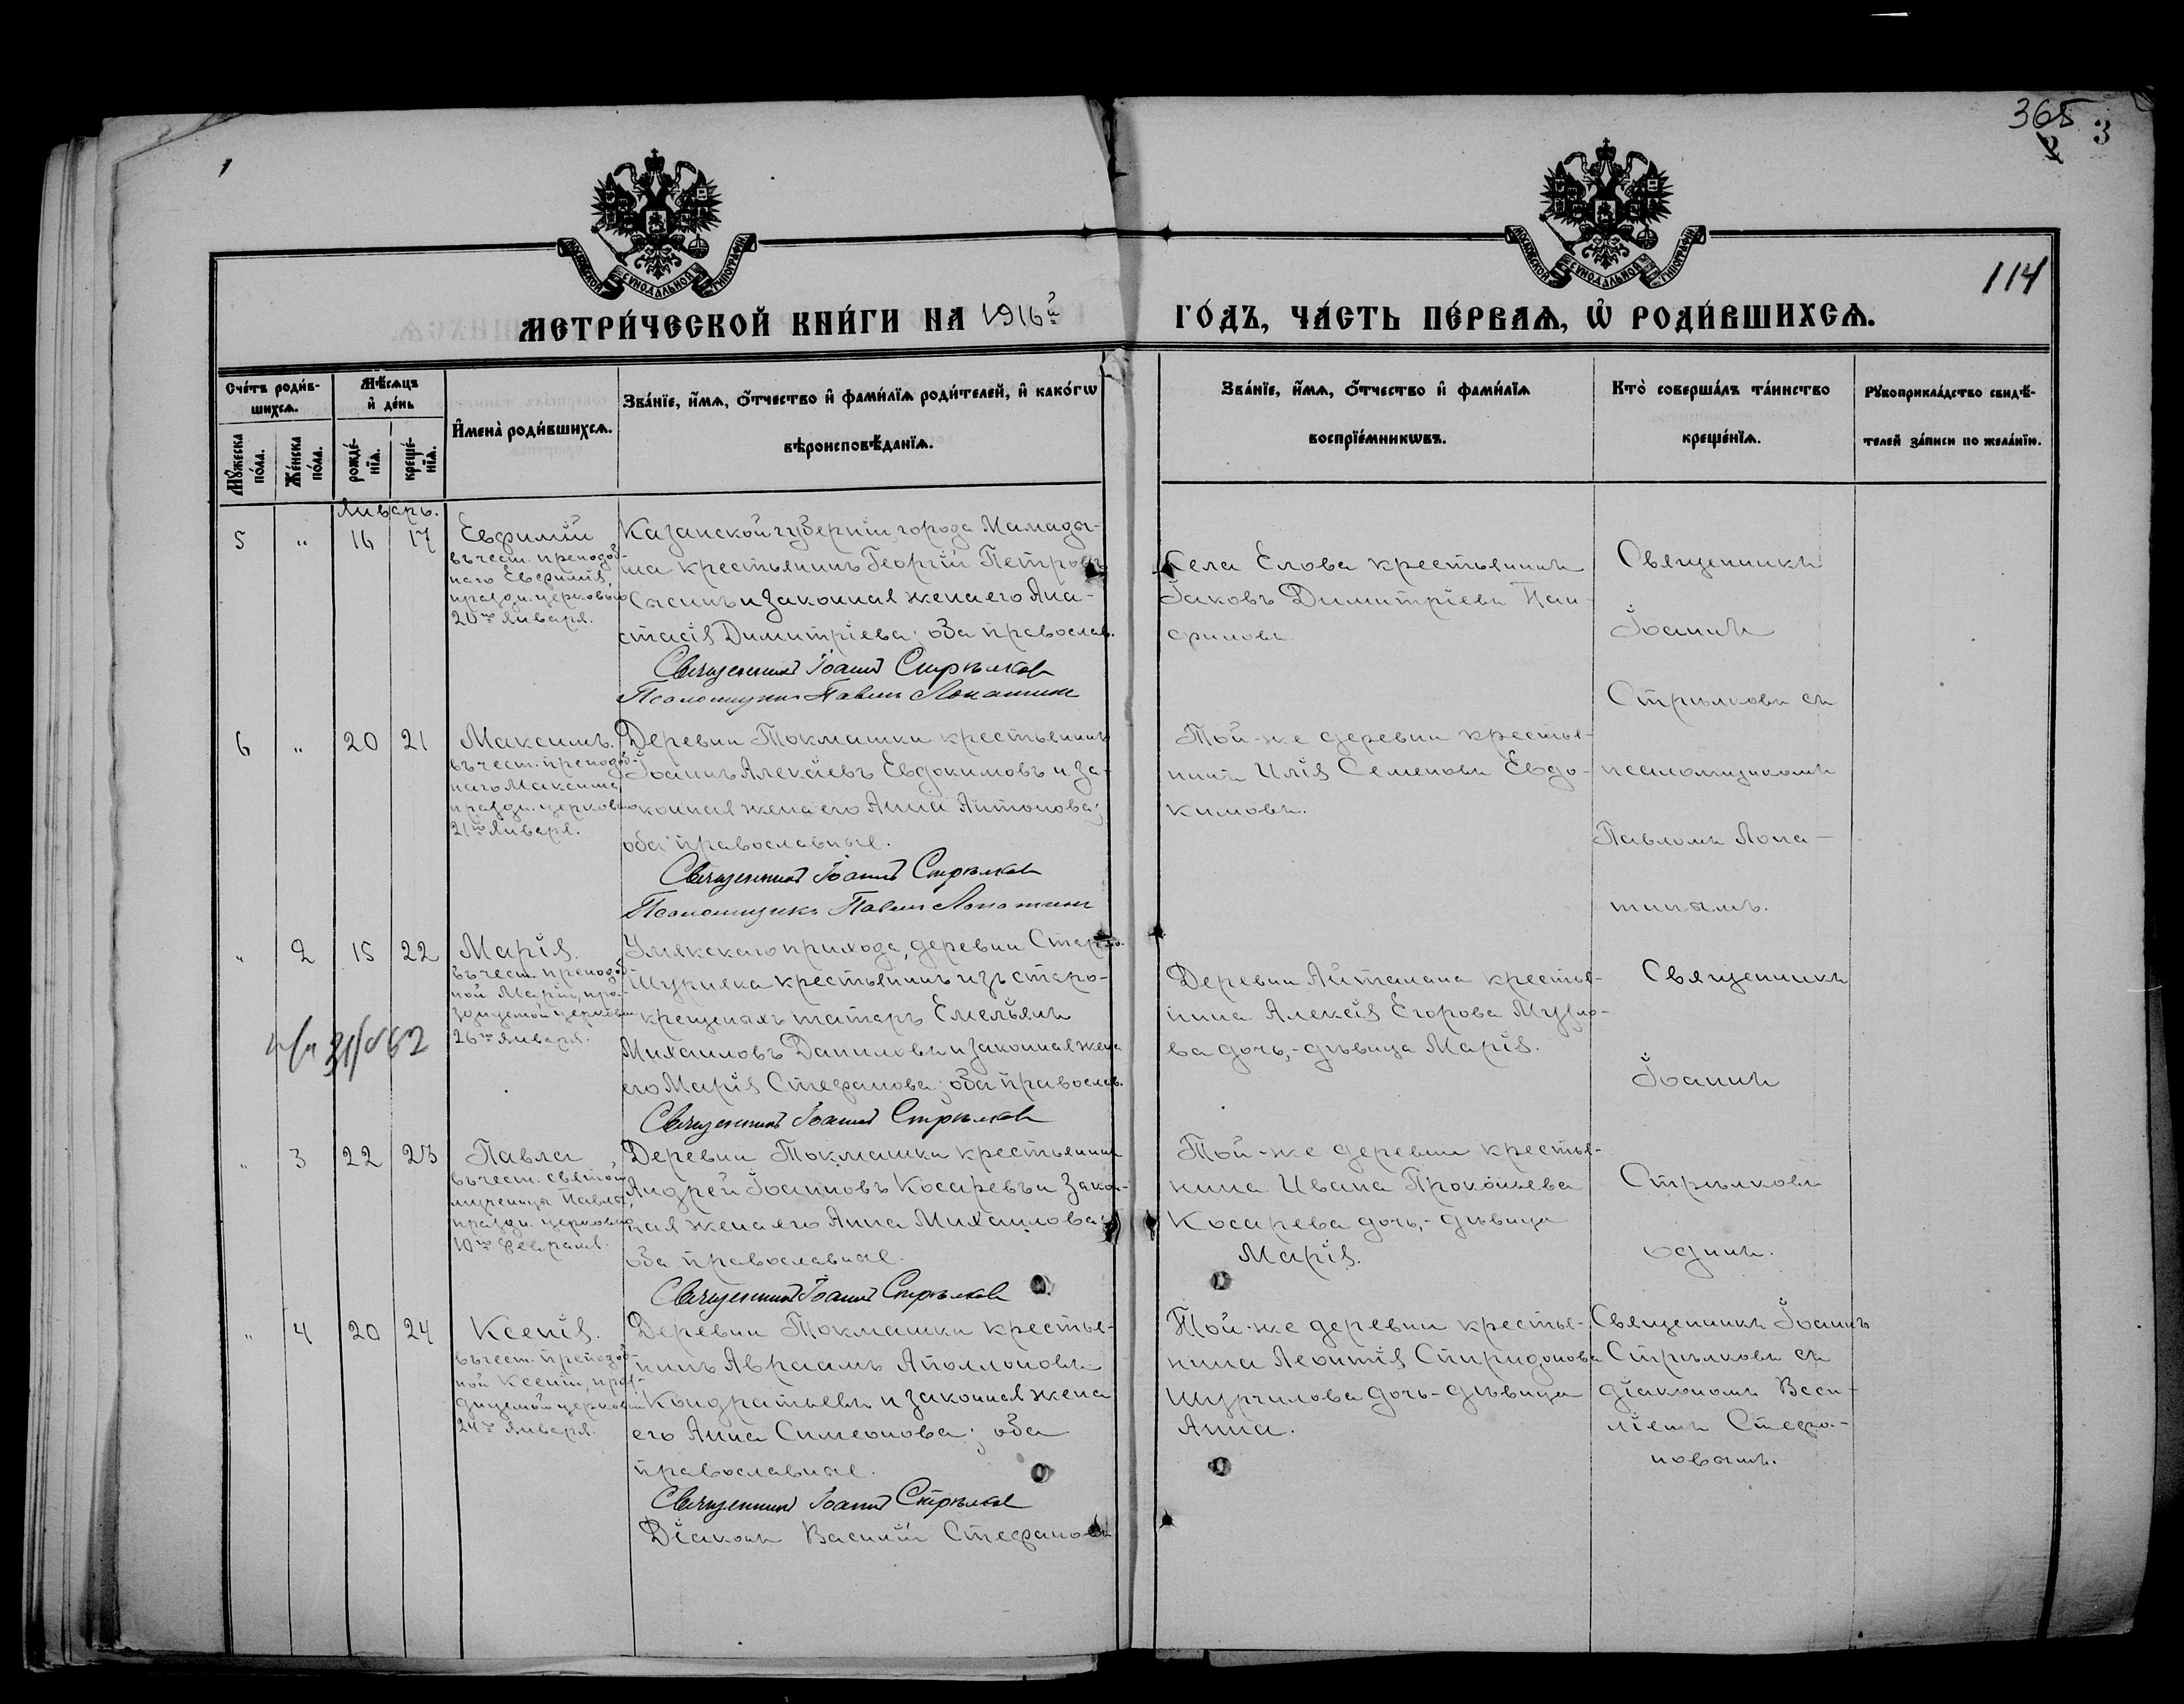 365
3
114
МОСКОВСКОЙ СѴНОДАЛЬНОЙ ТИПОГРАФІИ
МОСКОВСКОЙ СѴНОДАЛЬНОЙ ТИПОГРАФІИ
МЕТРИ́ЧЕСКОЙ КНИ́ГИ НА 1916й ГО́ДЪ, ЧА́СТЬ ПЕ́РВАѦ, Ѡ҆ РОДИ́ВШИХСѦ.
Сче́тъ роди́в-
шихсѧ.
Мꙋ́жеска по́ла.
Же́нска по́ла.
Мѣ́сѧцъ
и҆ де́нь
рожде́-
нїѧ.
креще́-
нїѧ.
И҆мена̀ роди́вшихсѧ.
Зва́нїе, и҆́мѧ, ѻ҆́тчество и҆ фами́лїѧ роди́телей, и҆ како́гѡ
вѣроисповѣ́данїѧ.
Зва́нїе, и҆́мѧ, ѻ҆́тчество и҆ фами́лїѧ
воспрїе́мникѡвъ.
Кто̀ соверша́лъ та́инство
креще́нїѧ.
Рꙋкоприкла́дство свидѣ́-
телей за́писи по жела́нїю.
Январь.
5 " 16 17
Евфимій
въ чест. преподоб-
наго Евфимія,
праздн. церковью
20го Января.
Казанской губерніи города Мамады-
ша крестьянинъ Георгій Петровъ
Сысинъ и законная жена его Ана-
стасія Димитріева; оба православ.
Священникъ Іоаннъ Стрѣлковъ
Псаломщикъ Павелъ Лопатинъ
Села Елова крестьянинъ
Іаковъ Димитріевъ Пан-
филовъ
Священникъ
Іоаннъ
Стрѣлковъ съ
псаломщикомъ
Павломъ Лопа-
тинымъ.
6 " 20 21
Максимъ.
въ чест. преподоб-
наго Максима,
праздн. церковью
21го Января.
Деревни Токмашки крестьянинъ
Іоаннъ Алексіевъ Евдокимовъ и за-
конная жена его Анна Антонова;
оба православные.
Священникъ Іоаннъ Стрѣлковъ
Псаломщикъ Павелъ Лопатинъ
Той-же деревни крестья-
нинъ Илія Семеновъ Евдо-
кимовъ.
" 2 15 22
Марія.
въ чест. преподоб-
ной Маріи, пра-
зднуемой церковью
26го Января.
Умякскаго прихода, деревни Старо-
Шурняка крестьянинъ изъ старо-
крещеныхъ татаръ Емельянъ
Михаиловъ Даниловъ и законная жена
его Марія Стефанова; оба православ.
Священникъ Іоаннъ Стрѣлковъ
Деревни Айталана крестья-
нина Алексія Егорова
ва дочь,-дѣвица Марія.
Священникъ
Іоаннъ
Стрѣлковъ
одинъ.
" 3 22 23
Павла
въ чест. святой
мученицы Павлы,
праздн. церковью
10го Февраля.
Деревни Токмашки крестьянинъ
Андрей Іоанновъ Косаревъ и закон-
ная жена его Анна Михаилова;
оба православные.
Священникъ Іоаннъ Стрѣлковъ
Той-же деревни крестья-
нина Ивана Прокопьева
Косарева дочь,-дѣвица
Марія.
" 4 20 24
Ксенія.
въ чест. преподоб-
ной Ксеніи, праз-
днуемой церковью
24го Января.
Деревни Токмашки крестья-
нинъ Авраамъ Аполлоновъ
Кондратьевъ и законная жена
его Анна Симеонова; оба
православные.
Священникъ Іоаннъ Стрѣлковъ
Діаконъ Василій Стефановъ
Той-же деревни крестья-
нина Леонтія Спиридонова
Шурчилова дочь-дѣвица
Анна.
Священникъ Іоаннъ
Стрѣлковъ съ
діакономъ Васи-
ліемъ Стефа-
новымъ.